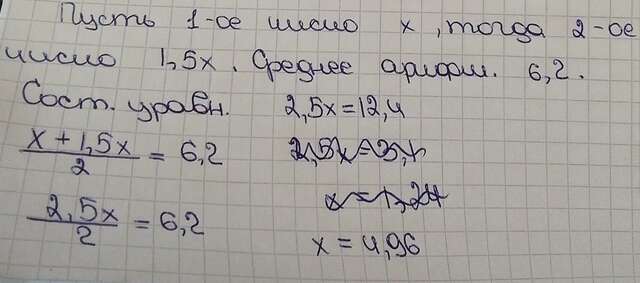 Пусть 1-ое число x, тогда 2-ое
число 1,5x. Среднее арифм. 6,2.
Сост. уравн.
x + 1,5x / 2 = 6,2
2,5x / 2 = 6,2
2,5x = 12,4
x = 4,96